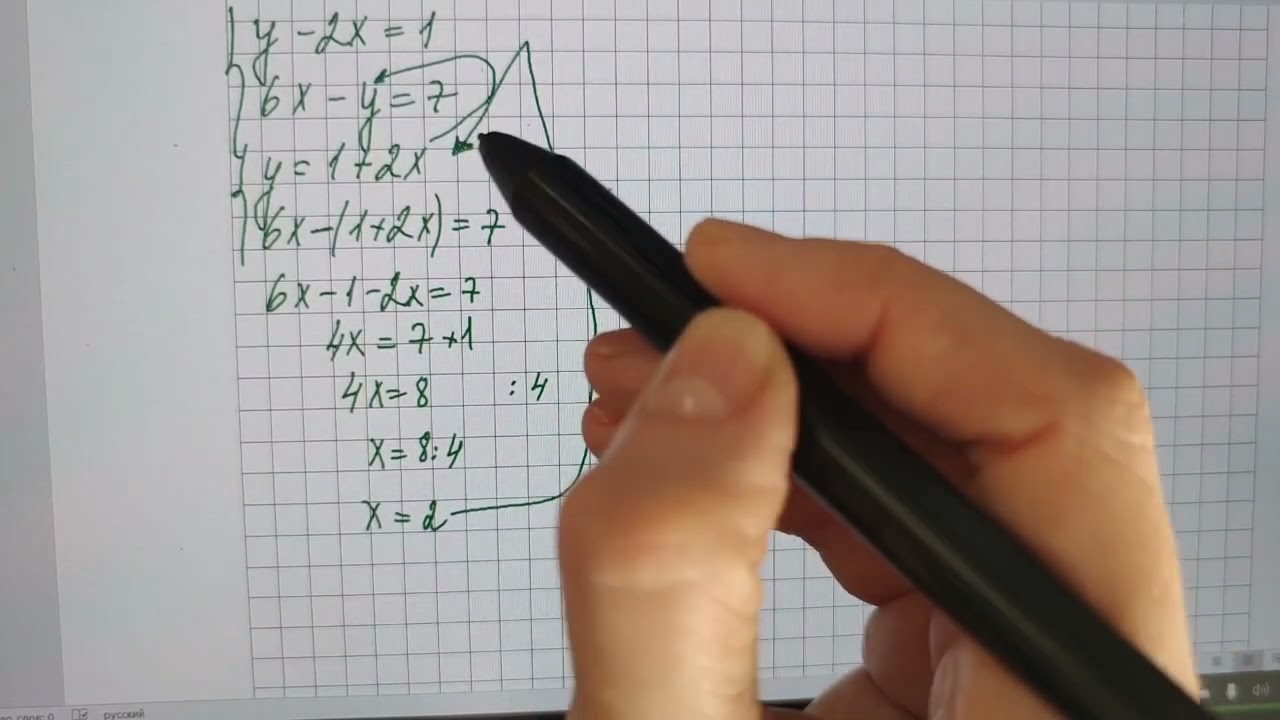 y - 2x = 1
6x - y = 7
y = 1 + 2x
6x - (1 + 2x) = 7
6x - 1 - 2x = 7
4x = 7 + 1
4x = 8 : 4
x = 8 : 4
x = 2
русский